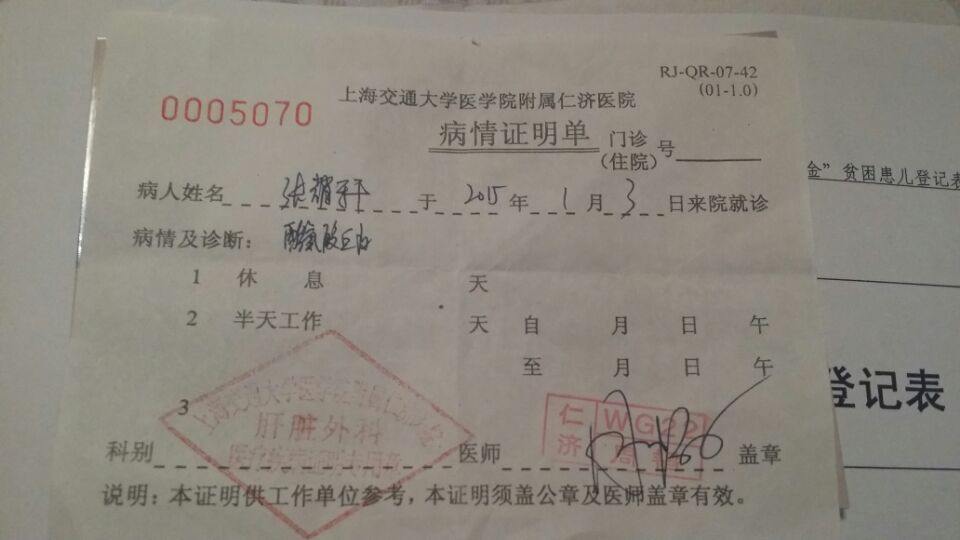 RJ-QR-07-42
(01-1.0)
0005070
上海交通大学医学院附属仁济医院
病情证明单 门诊(住院)号
金”贫困患儿登记表
病人姓名 张 于 2015 年 1 月 3 日来院就诊
病情及诊断: 酪氨酸
1 休 息 天
2 半天工作 天 自 月 日 午
至 月 日 午
登记表
3
上海交通大学医学院附属仁济医院
肝脏外科
仁济 WG22
科别 医师 盖章
说明:本证明供工作单位参考,本证明须盖公章及医师盖章有效。